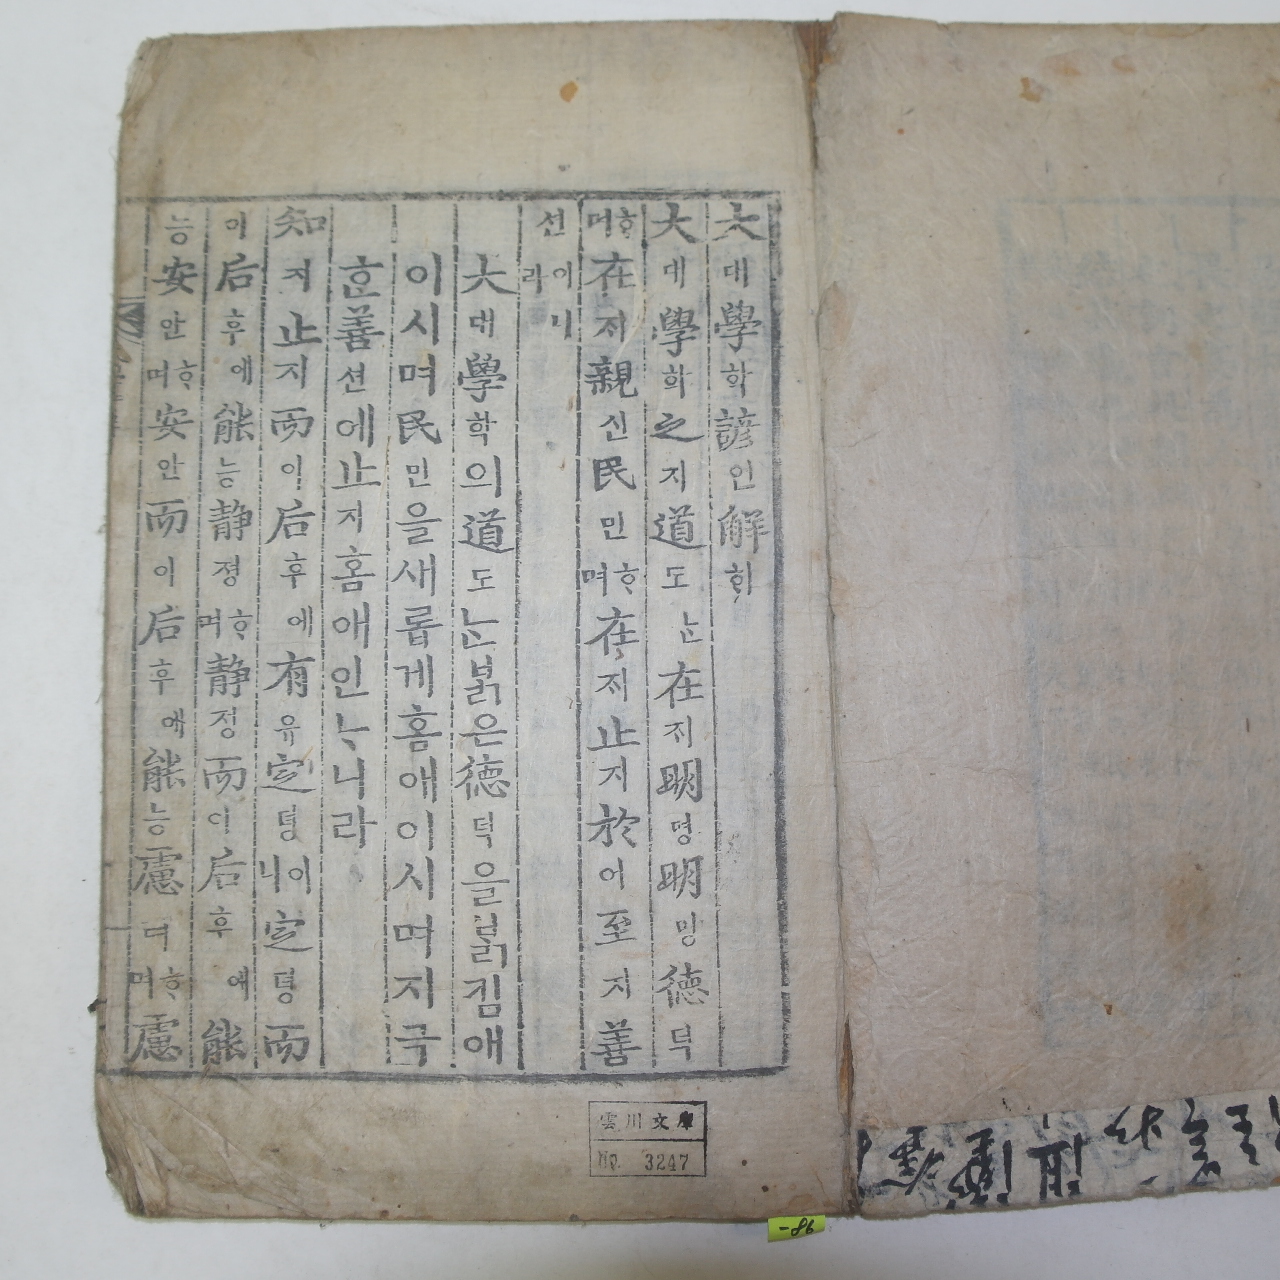 大대學ᄒᆞᆨ諺언解ᄒᆡ
大대學ᄒᆞᆨ之지道도ᄂᆞᆫ在ᄌᆡ明명明명德덕
ᄒᆞ며在ᄌᆡ親신民민ᄒᆞ며在ᄌᆡ止지於어至지善
션이니라
大대學ᄒᆞᆨ의道도ᄂᆞᆫ붉은德덕을붉킴애
이시며民민을새롭게홈애이시며지극
ᄒᆞᆫ善션에止지홈애인ᄂᆞ니라
知지止지而이后후에有유定뎡이니定뎡而
이后후에能능靜졍ᄒᆞ며靜졍而이后후에能
능安안ᄒᆞ며安안而이后후에能능慮려ᄒᆞ며慮
雲川文庫
No. 3247
-86